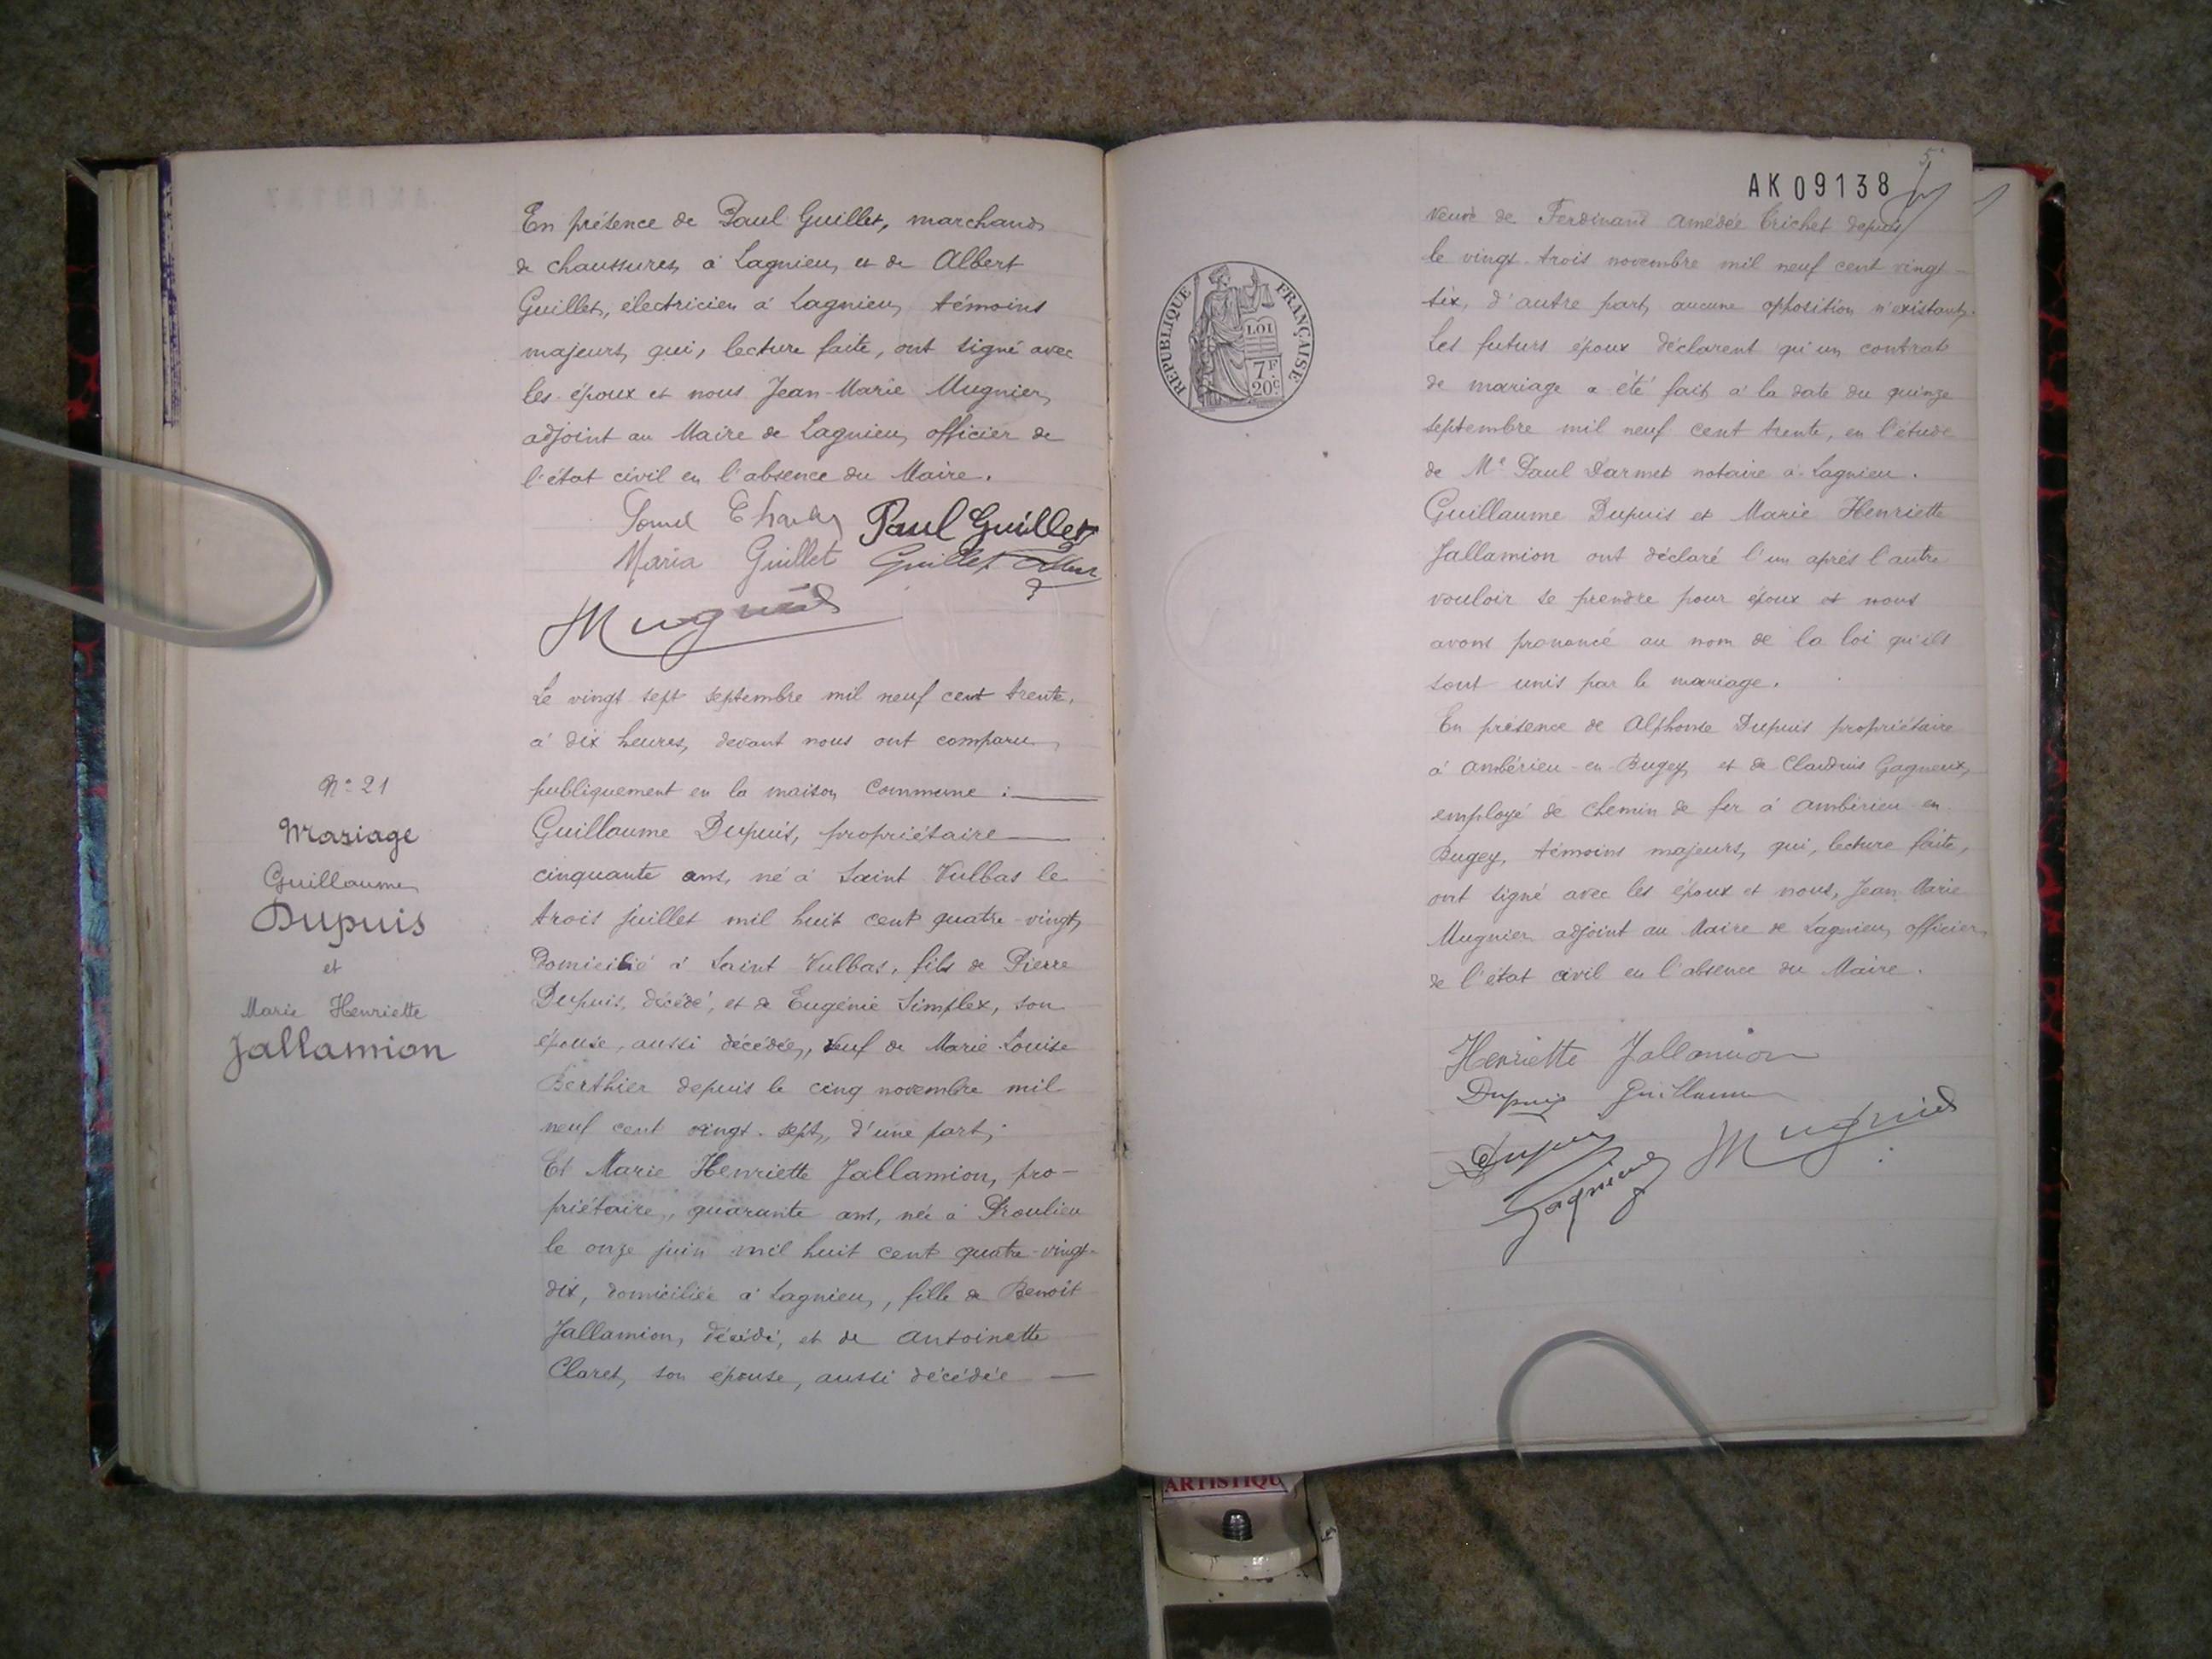 En présence de Paul Guillet, marchand
de chaussures à Lagnieu, et de Albert
Guillet, électricien à Lagnieu, témoins
majeurs, qui, lecture faite, ont signé avec
les époux et nous Jean-Marie Mugnier,
adjoint au Maire de Lagnieu, officier de
l'état civil en l'absence du Maire.
Paul Guillet
Maria Guillet Guillet
Mugnier
Le vingt sept septembre mil neuf cent trente,
à dix heures, devant nous ont comparu
publiquement en la maison commune :
Guillaume Dupuis, propriétaire
cinquante ans, né à Saint Vulbas le
trois juillet mil huit cent quatre-vingt,
Domicilié à Saint Vulbas, fils de Pierre
Dupuis, décédé, et de Eugénie Simplex, son
épouse, aussi décédée, veuf de Marie Louise
Berthier depuis le cinq novembre mil
neuf cent vingt-sept, d'une part;
Et Marie Henriette Jallamion, pro-
priétaire, quarante ans, née à Proulieu
le onze juin mil huit cent quatre-vingt-
dix, domiciliée à Lagnieu, fille de Benoît
Jallamion, décédé, et de Antoinette
Claret, son épouse, aussi décédée
N° 21
Mariage
Guillaume
Dupuis
et
Marie Henriette
Jallamion
AK 09138
REPUBLIQUE FRANÇAISE
LOI
7F
20c
veuve de Ferdinand Amédée Trichet depuis
le vingt-trois novembre mil neuf cent vingt-
six, d'autre part, aucune opposition n'existant.
Les futurs époux déclarent qu'un contrat
de mariage a été fait à la date du quinze
septembre mil neuf cent trente, en l'étude
de Me Paul Darmet notaire à Lagnieu.
Guillaume Dupuis et Marie Henriette
Jallamion ont déclaré l'un après l'autre
vouloir se prendre pour époux et nous
avons prononcé au nom de la loi qu'ils
sont unis par le mariage.
En présence de Alphonse Dupuis propriétaire
à Ambérieu-en-Bugey et de Claudius Gagneux,
employé de chemin de fer à Ambérieu-en
Bugey, témoins majeurs, qui, lecture faite,
ont signé avec les époux et nous, Jean Marie
Mugnier adjoint au Maire de Lagnieu, officier
de l'état civil en l'absence du Maire.
Henriette Jallamion
Dupuis Guillaume
Dupuis Mugnier
Gagneux
ARTISTIQU